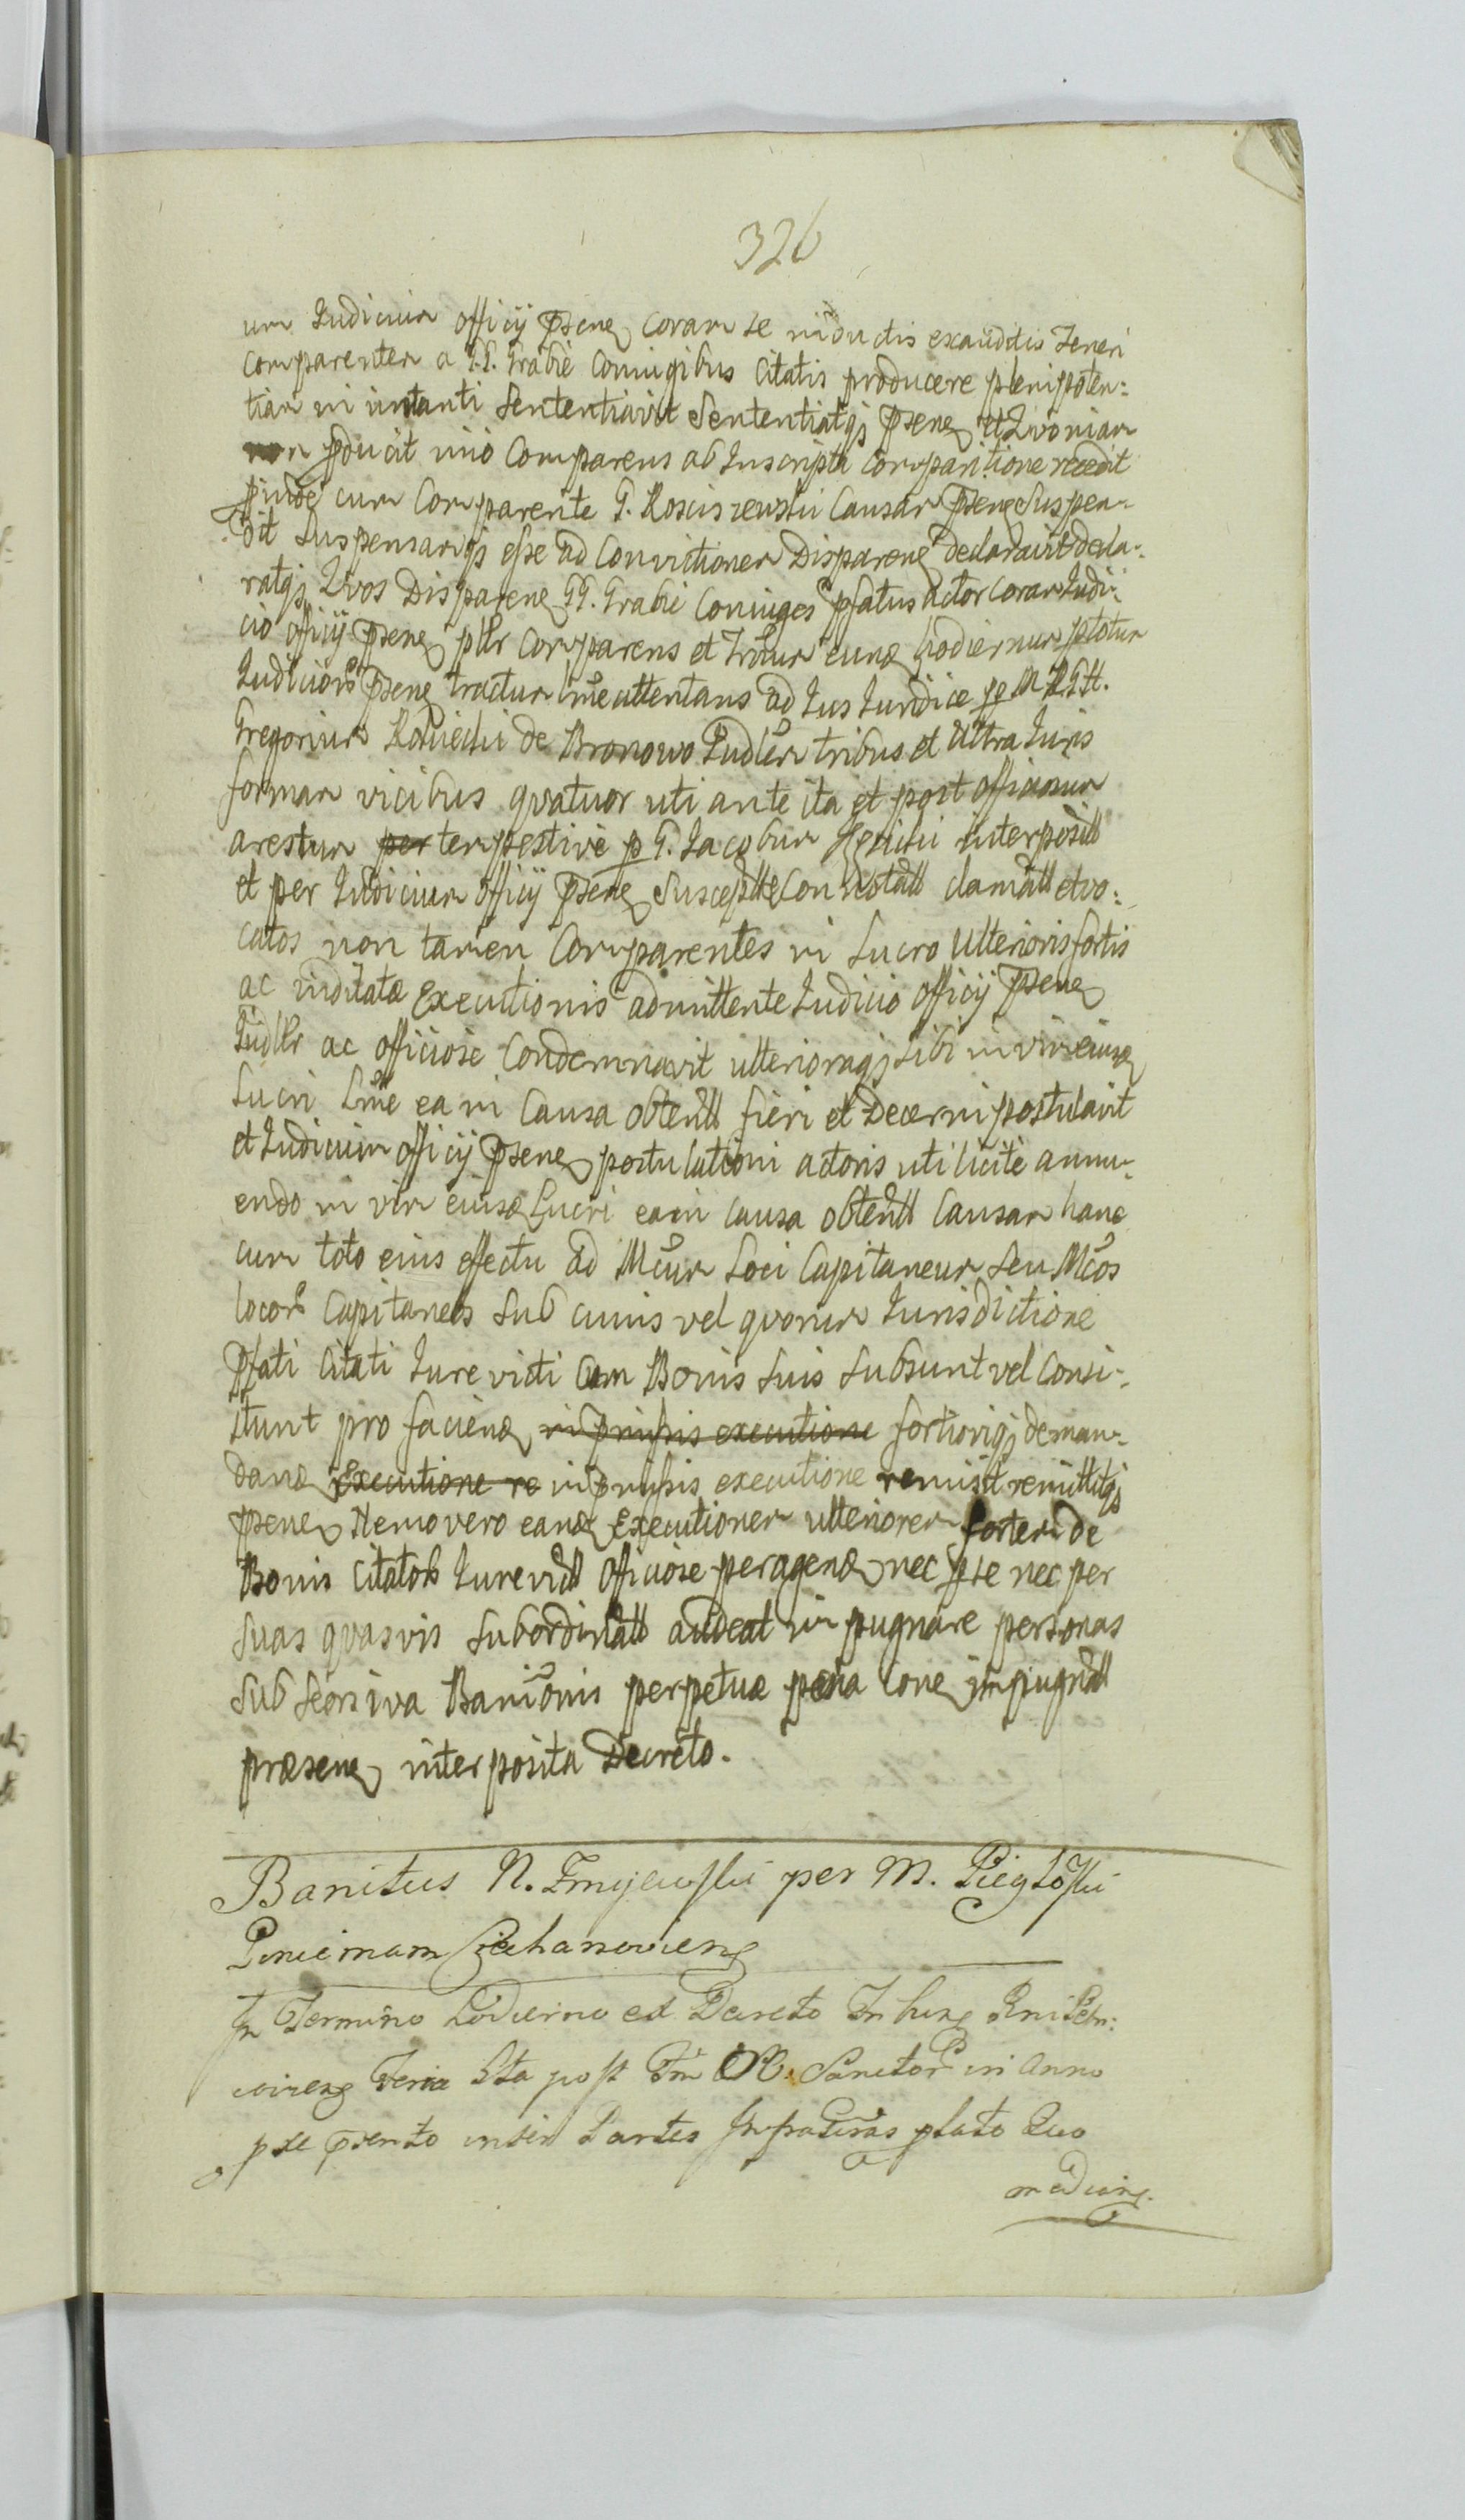 326
um Judicium officij psene coram se inductis exauditis Teneri
comparentem a GG. Grabie Coniugibus Citatis producere plenipoten:
tiam in instanti Sententiavit Sententiatqj psene et Qvoniam
non pducit imo Comparens ab Inscripta comparitione recedit
proinde cum Comparente G. Kosciszewski Causam psene Suspen-
dit Suspensamqj esse ad Convictionem Disparene declaravit decla-
ratqj Qvos Disparene GG. Grabie Coniuges pfatus Actor coram Judi-
cio officij psene pltr Comparens et Trnum eund hodiernum
Judiciorb psene tractum lme attentans ad Jus Juridice pe M RGH.
Gregorium de Bronowo Judlem tribus et Ultra Juris
formam vicibus qvatuor uti ante ita et post officiosum
arestum per tempestive p G. Jacobum interposit
et per Judicium officij psene clamatt et vo:
catos non tamen Comparentes in Lucro Ulterioris fortis
ac inditatæ Executionis admittente Judicio officij psene
Judllr ac officiose Condemnavit ulterioraqj sibi in vim eiusd
Lucri lme ea in Causa obtentt fieri et Decerni postulavit
et Judicium officij psene postulationi actoris uti licite annu-
endo in vim eiusd Lucri ea in causa obtentt Causam hanc
cum toto eius effectu ad Mcum Loci Capitaneum seu Mcos
locorb Capitaneos Sub cuius vel qvorum Jurisdictione
pfati Citati Jure victi Cum Bonis suis Subsunt vel Consi-
stunt pro faciend in pmissis executione fortioriqj deman-
dand Executione re in pmissis executione remisit remittitqj
psene Nemo vero eand Executionem ulteriorem fortem de
Bonis Citatorb Jurevictt officiose peragend nec p se nec per
suas qvasvis Subordinatt audeat impugnare personas
Sub Banionis perpetuæ pæna cone impugntt
præsene interposita Decreto.
Banitus N. Zmijewski per M. Piegłoski
Pincernam Ciechanoviens
In Termino hodierno ex Decreto Tribune Rni Petri:
coviens Feria Sta post Fm OO. Sanctorb in Anno
pte psento inter Partes Infratnras plato Quo